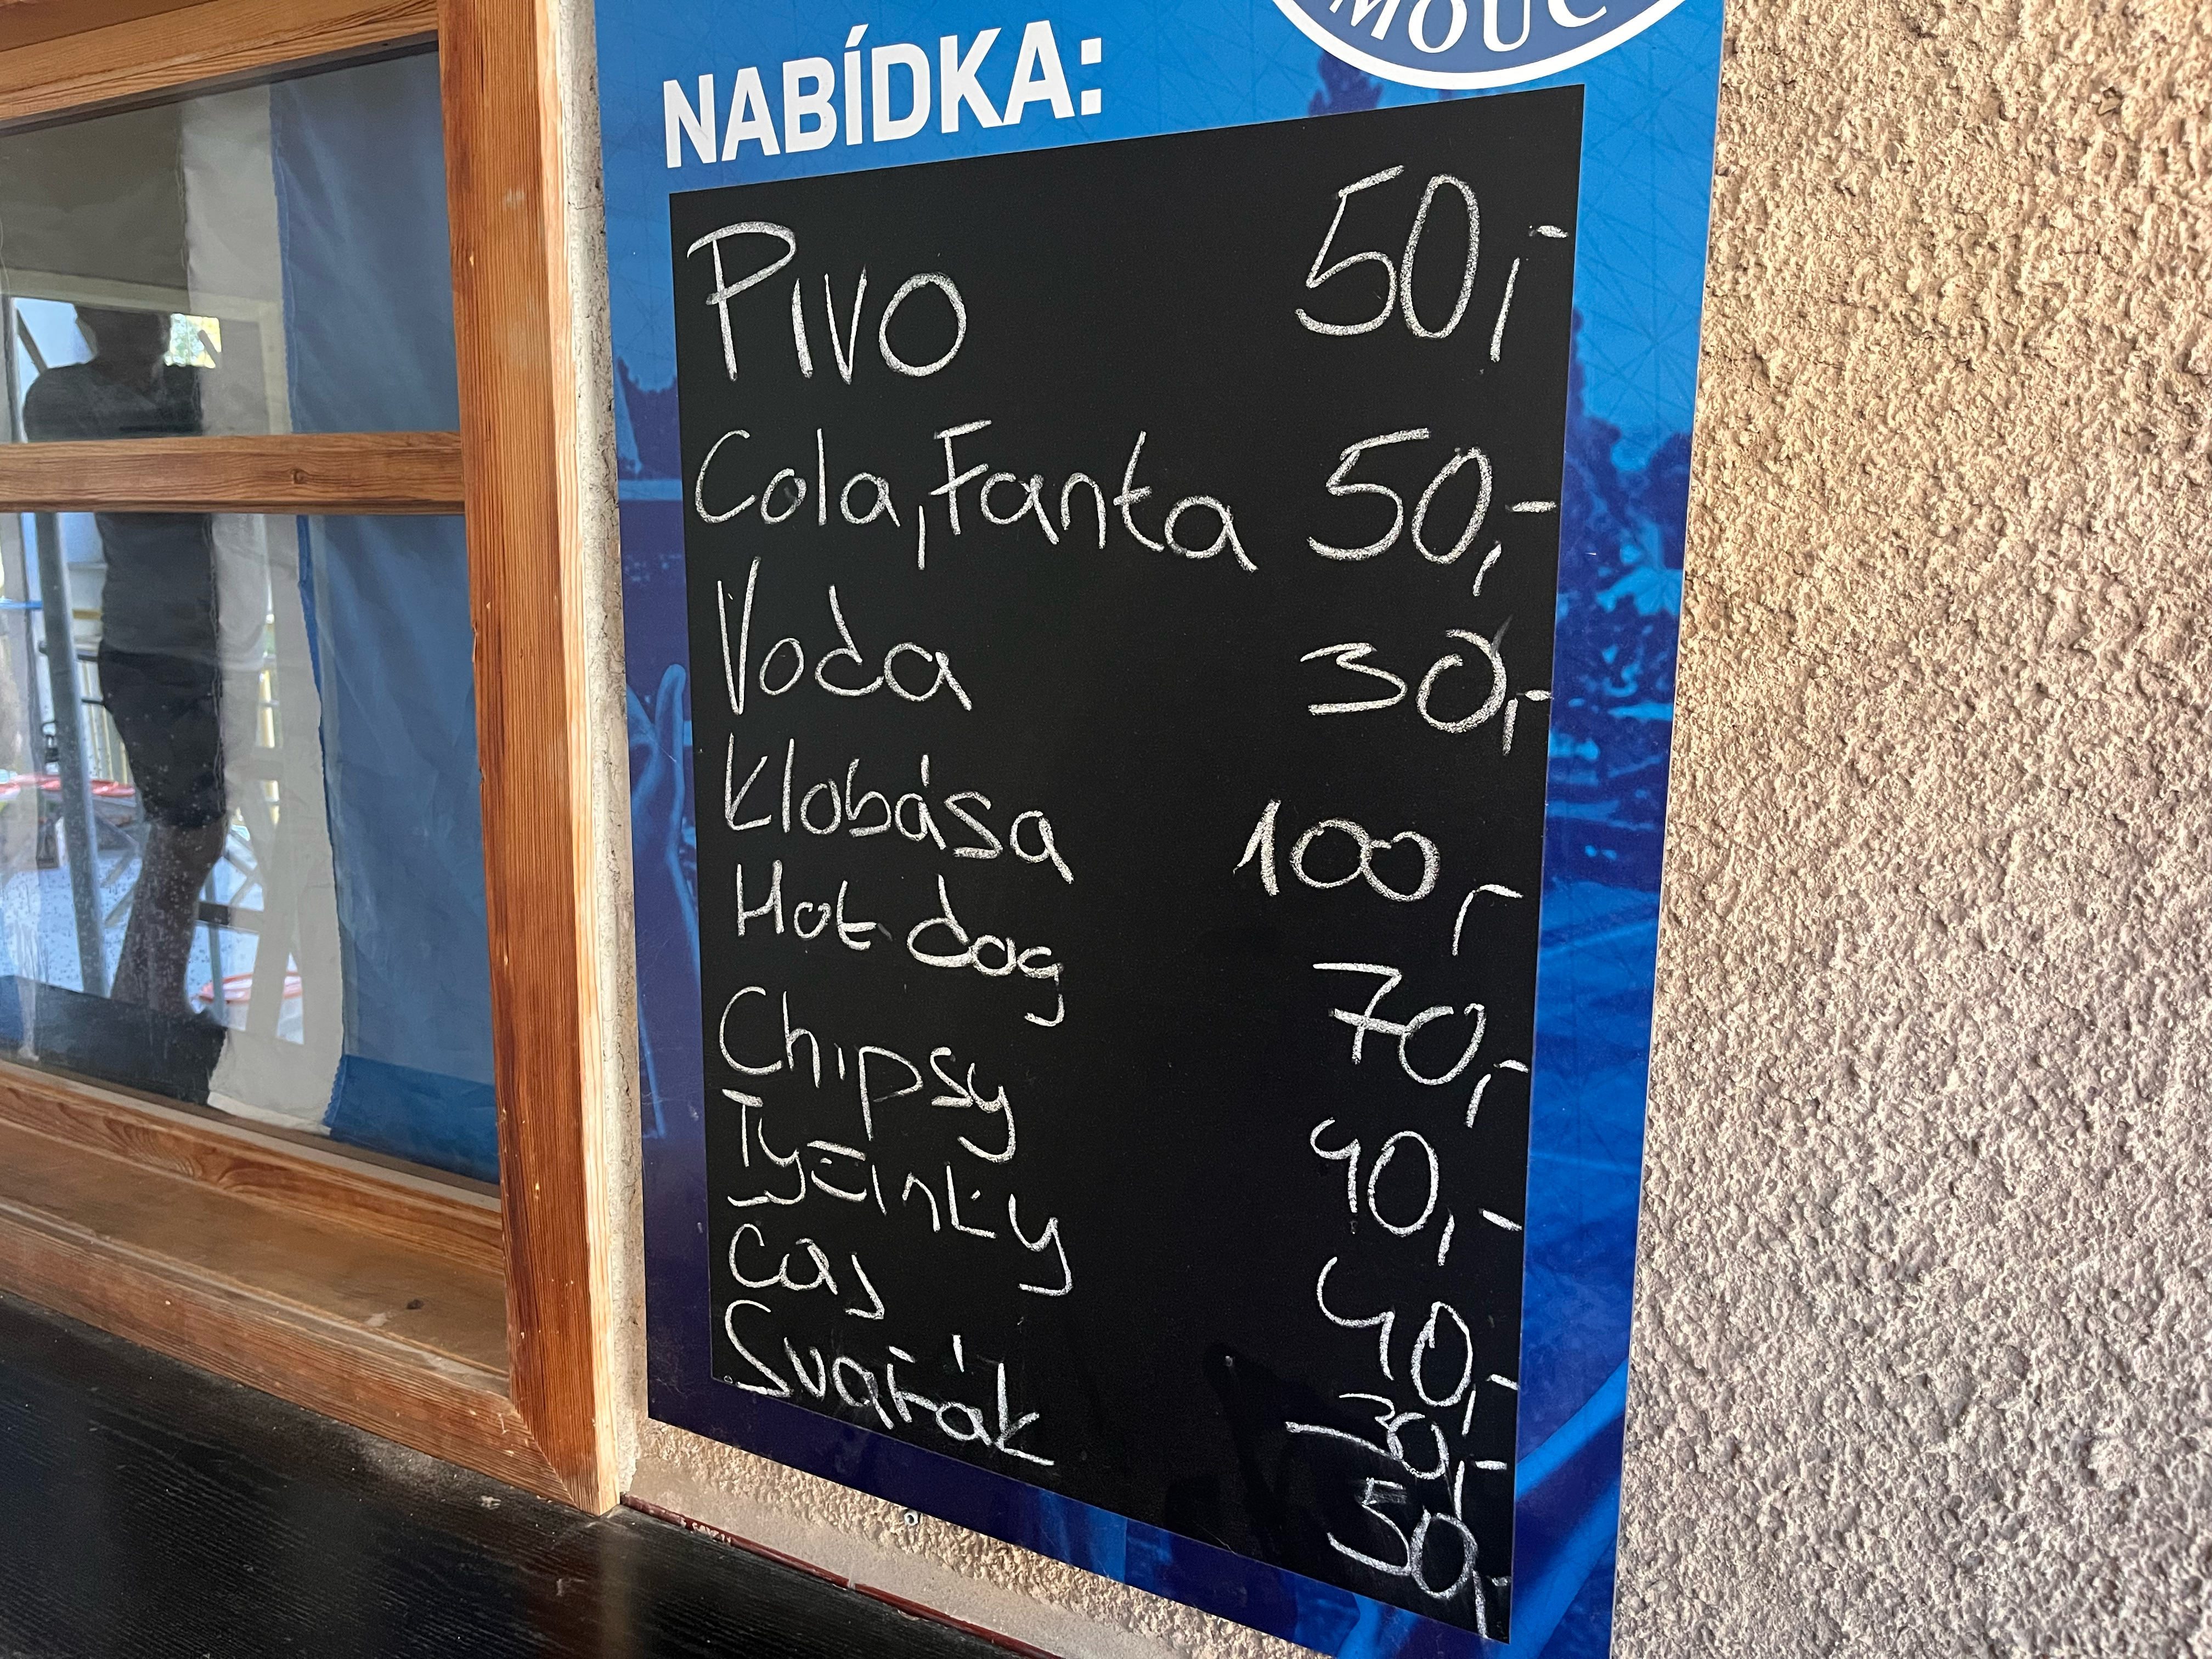 MOUC
NABÍDKA:
Pivo 50,-
Cola, Fanta 50,-
Voda 30,-
Klobása 100,-
Hot dog 70,-
Chipsy 40,-
Tyčinky 40,-
Čaj 30,-
Svařák 50,-